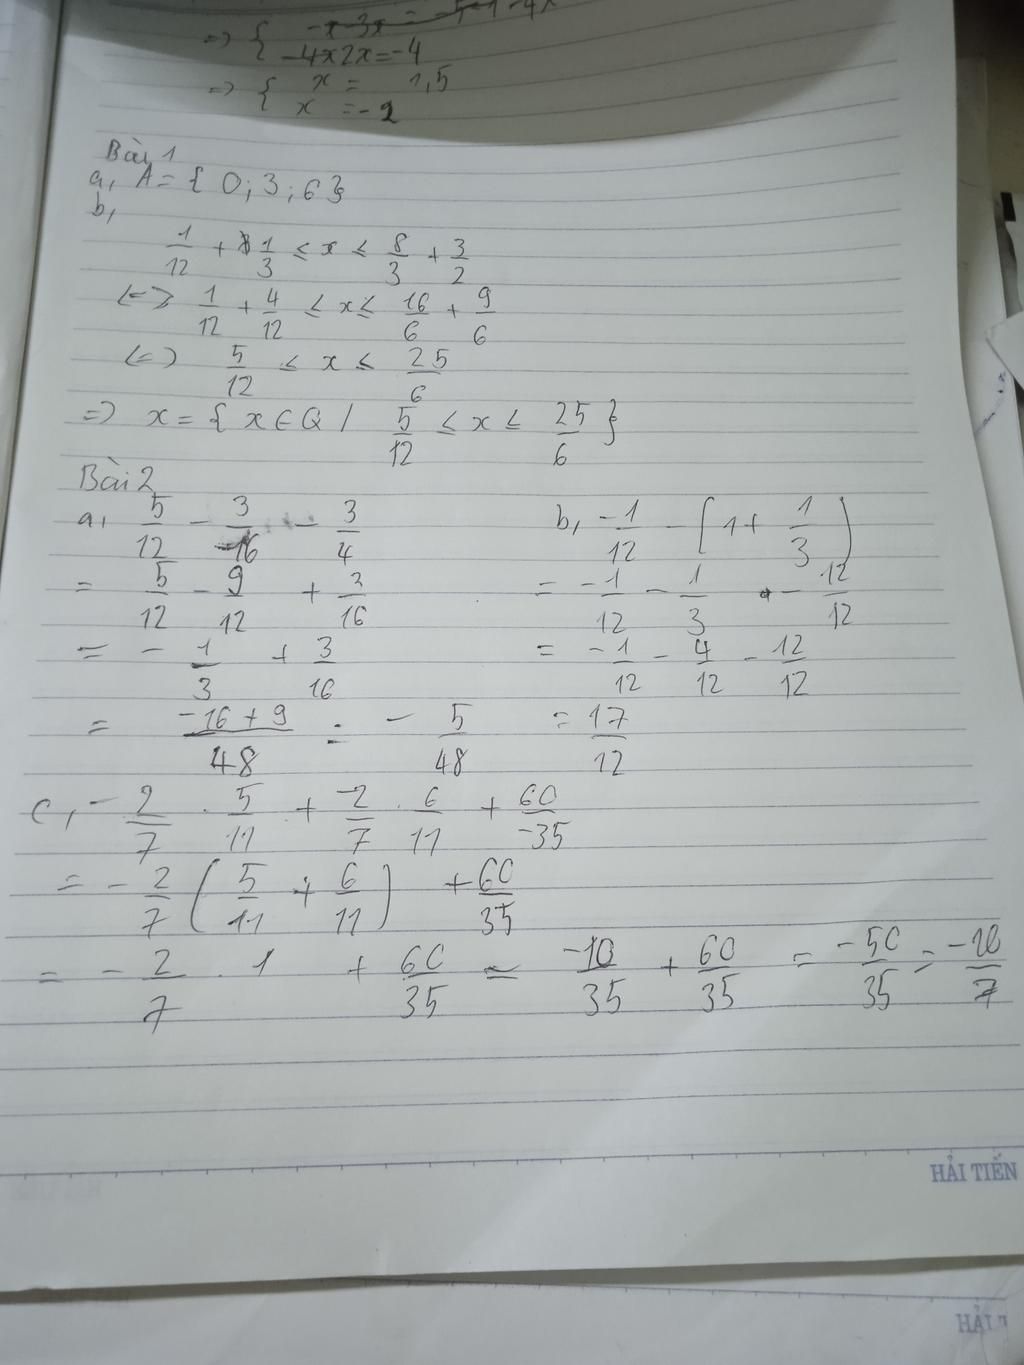 => { -x-3x = -5-1-4x
-4x2x=-4
=> { x = 1,5
x =-2
Bài 1
a, A = { 0; 3; 6 }
b,
1/12 + 1/3 ≤ x ≤ 8/3 + 3/2
<=> 1/12 + 4/12 ≤ x ≤ 16/6 + 9/6
<=> 5/12 ≤ x ≤ 25/6
=> x = { x ∈ Q / 5/12 ≤ x ≤ 25/6 }
Bài 2
a, 5/12 - 3/-16 - 3/4
= 5/12 - 9/12 + 3/16
= - 1/3 + 3/16
= (-16 + 9)/48 = - 5/48
b, -1/12 - ( 1 + 1/3 )
= -1/12 - 1/3 - 12/12
= -1/12 - 4/12 - 12/12
= 17/12
c, - 2/7 . 5/11 + -2/7 . 6/11 + 60/-35
= - 2/7 ( 5/11 + 6/11 ) + 60/35
= - 2/7 . 1 + 60/35 = -10/35 + 60/35 = -50/35 = -10/7
HẢI TIẾN
HẢI T